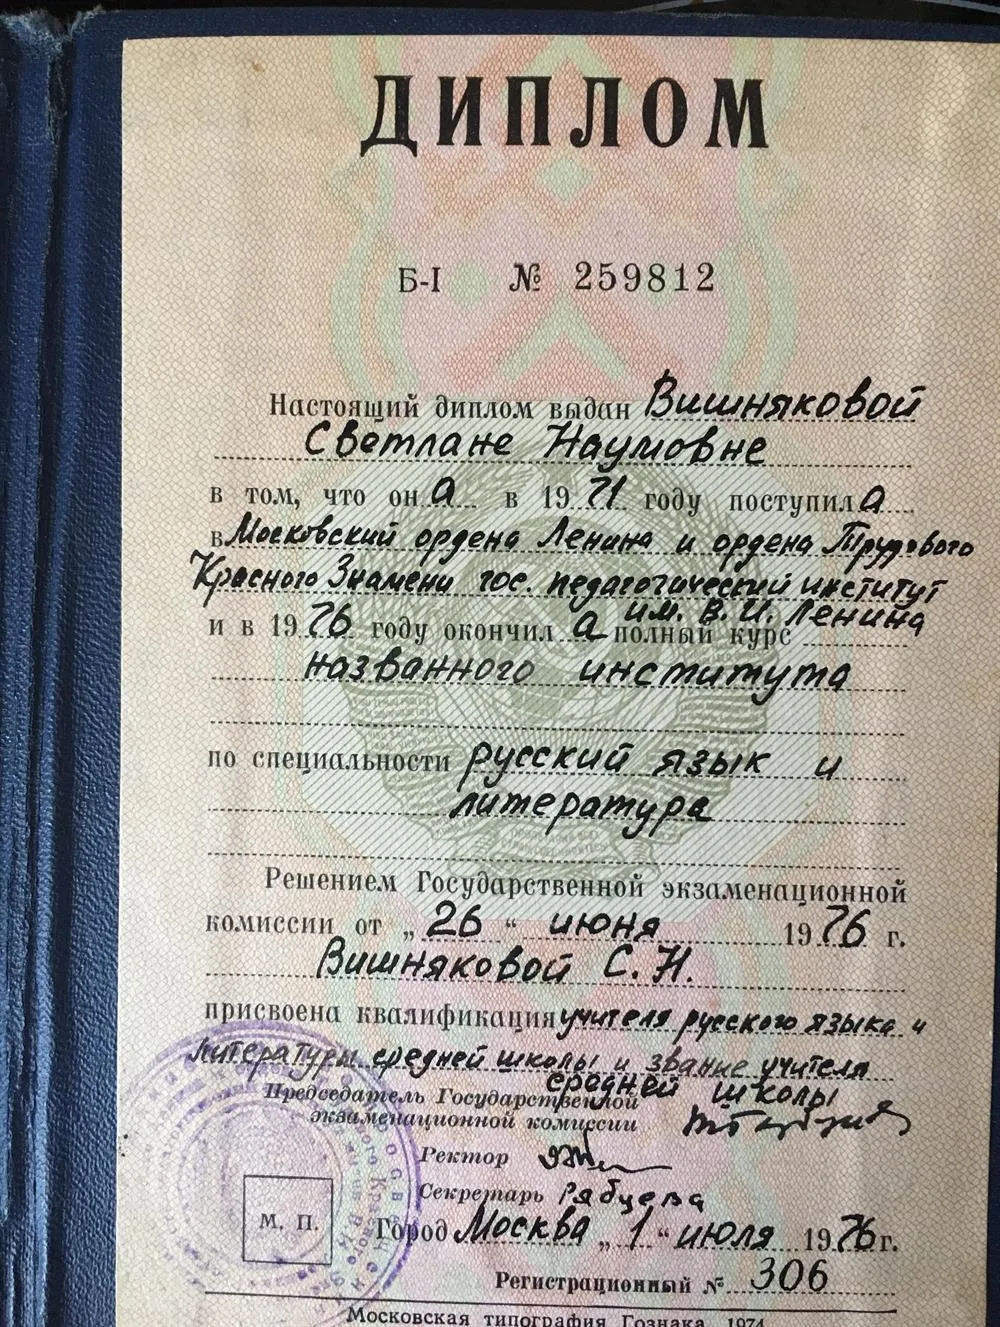 ДИПЛОМ
Б-I № 259812
Настоящий диплом выдан Вишняковой
Светлане Наумовне
в том, что он а в 1971 году поступил а
в Московский ордена Ленина и ордена Трудового
Красного Знамени гос. педагогический институт
им. В. И. Ленина
и в 1976 году окончил а полный курс
названного института
по специальности русский язык и
литература
Решением Государственной экзаменационной
комиссии от „26“ июня 1976 г.
Вишняковой С. Н.
присвоена квалификация учителя русского языка и
литературы средней школы и звание учителя
средней школы
Председатель Государственной
экзаменационной комиссии
Ректор
Секретарь Рябцева
М. П.
Город Москва „1“ июля 1976 г.
Регистрационный № 306
Московская типография Гознака. 1974.